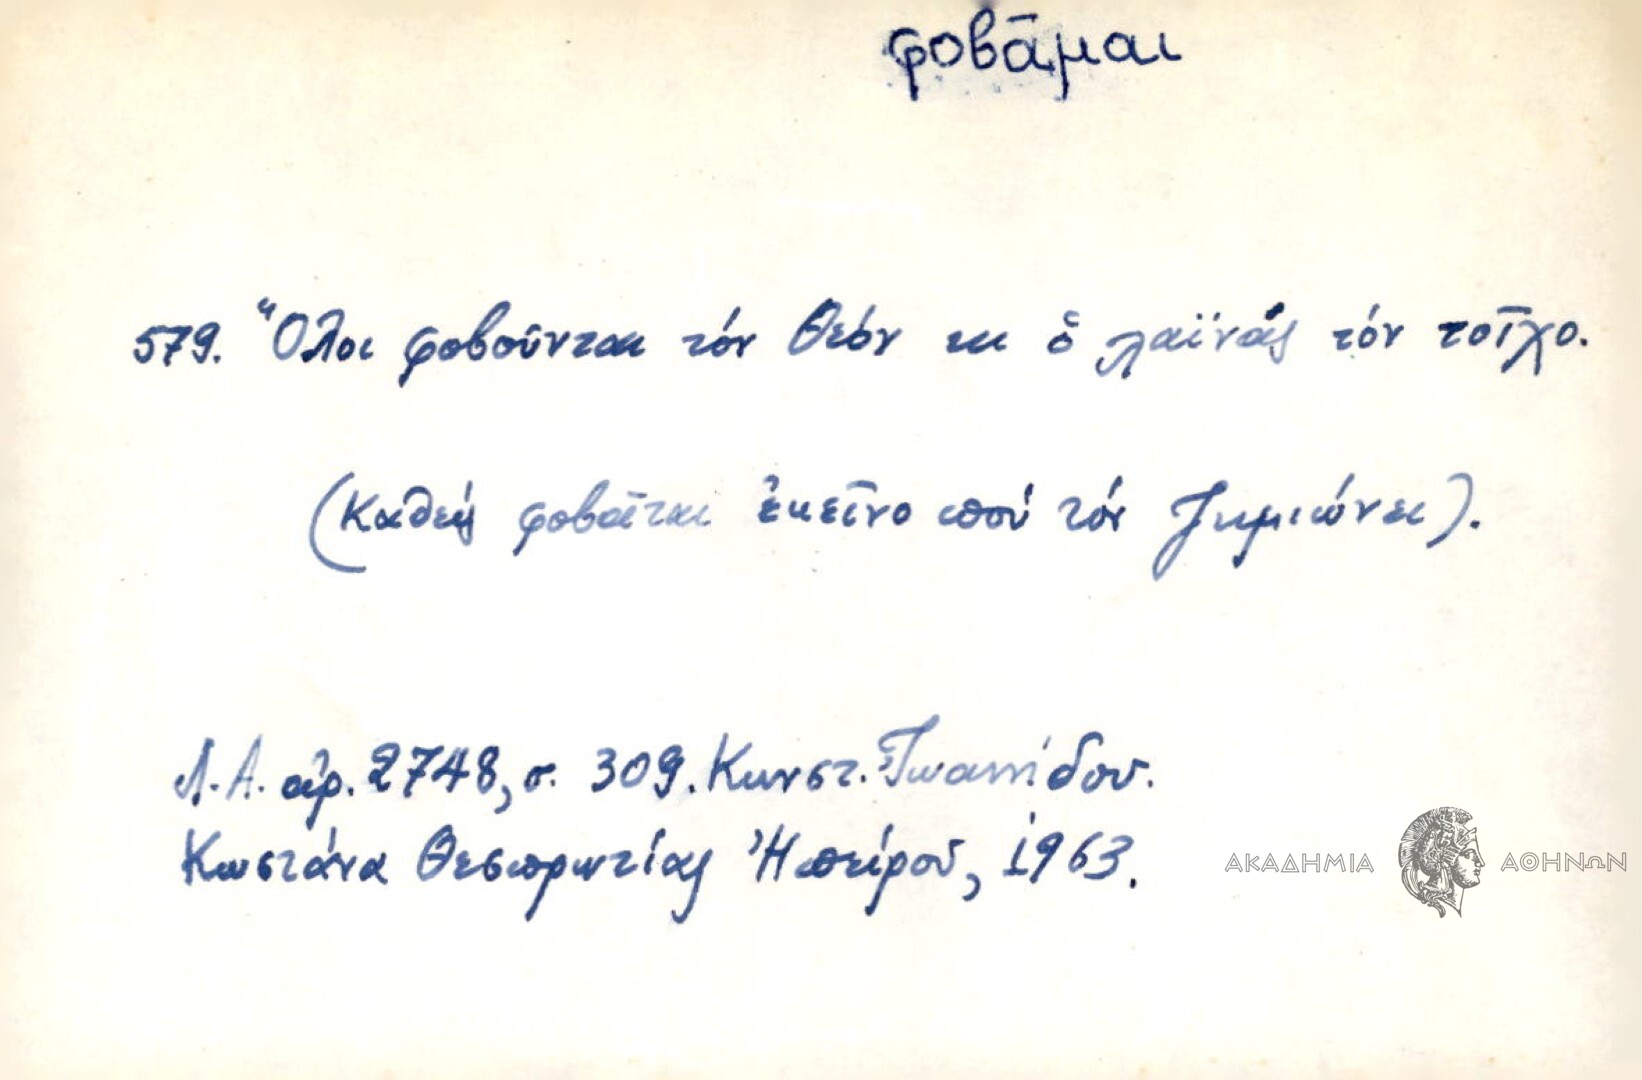 φοβᾶμαι
579. Ὅλοι φοβοῦνται τόν Θεόν κι ὁ λαϊνᾶς τόν τοῖχο.
(Καθείς φοβᾶται ἐκεῖνο πού τόν ζημιώνει).
Λ.Α. ἀρ. 2748, σ. 309. Κωνστ. Ἰωαννίδου.
Κωστάνα Θεσπρωτίας Ἠπείρου, 1963.
ΑΚΑΔΗΜΙΑ ΑΘΗΝΩΝ